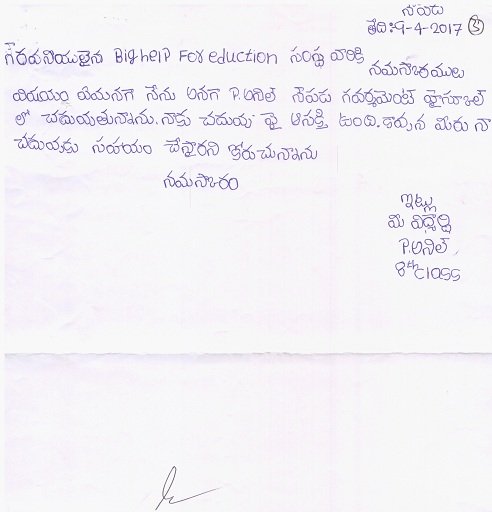 నాపేడు
తేది:9-4-2017 3
గౌరవనీయులైన Big help For eduction సంస్థ వారికి
నమస్కారములు
విషయం ఏమనగా నేను అనగా P.అనిల్ నేపడు గవర్నమెంట్ హైస్కూల్
లో చదువుతున్నాను. నాకు చదువు పై ఆసక్తి ఉంది. కావున మీరు నా
చదువుకు సహయం చేస్తారని కోరుచున్నాను
నమస్కారం
ఇట్లు
మీ విద్యార్థి
P.అనిల్
8th class